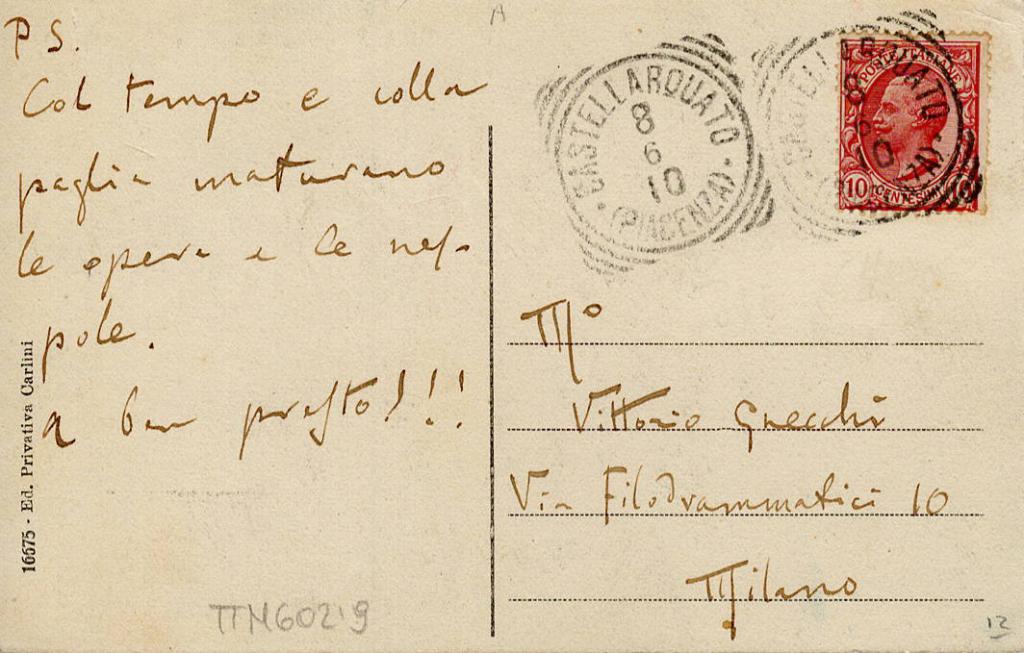 P.S.
Col tempo e colla
paglia maturano
le opere e le nes-
pole.
A ben presto!!!
16675 - Ed. Privativa Carlini
TTM60219
A
CASTELLARQUATO
8
6
10
(PIACENZA)
CASTELLARQUATO
8
6
10
POSTE ITALIANE
10 CENTESIMI 10
Mº
Vittorio Gnecchi
Via Filodrammatici 10
Milano
12